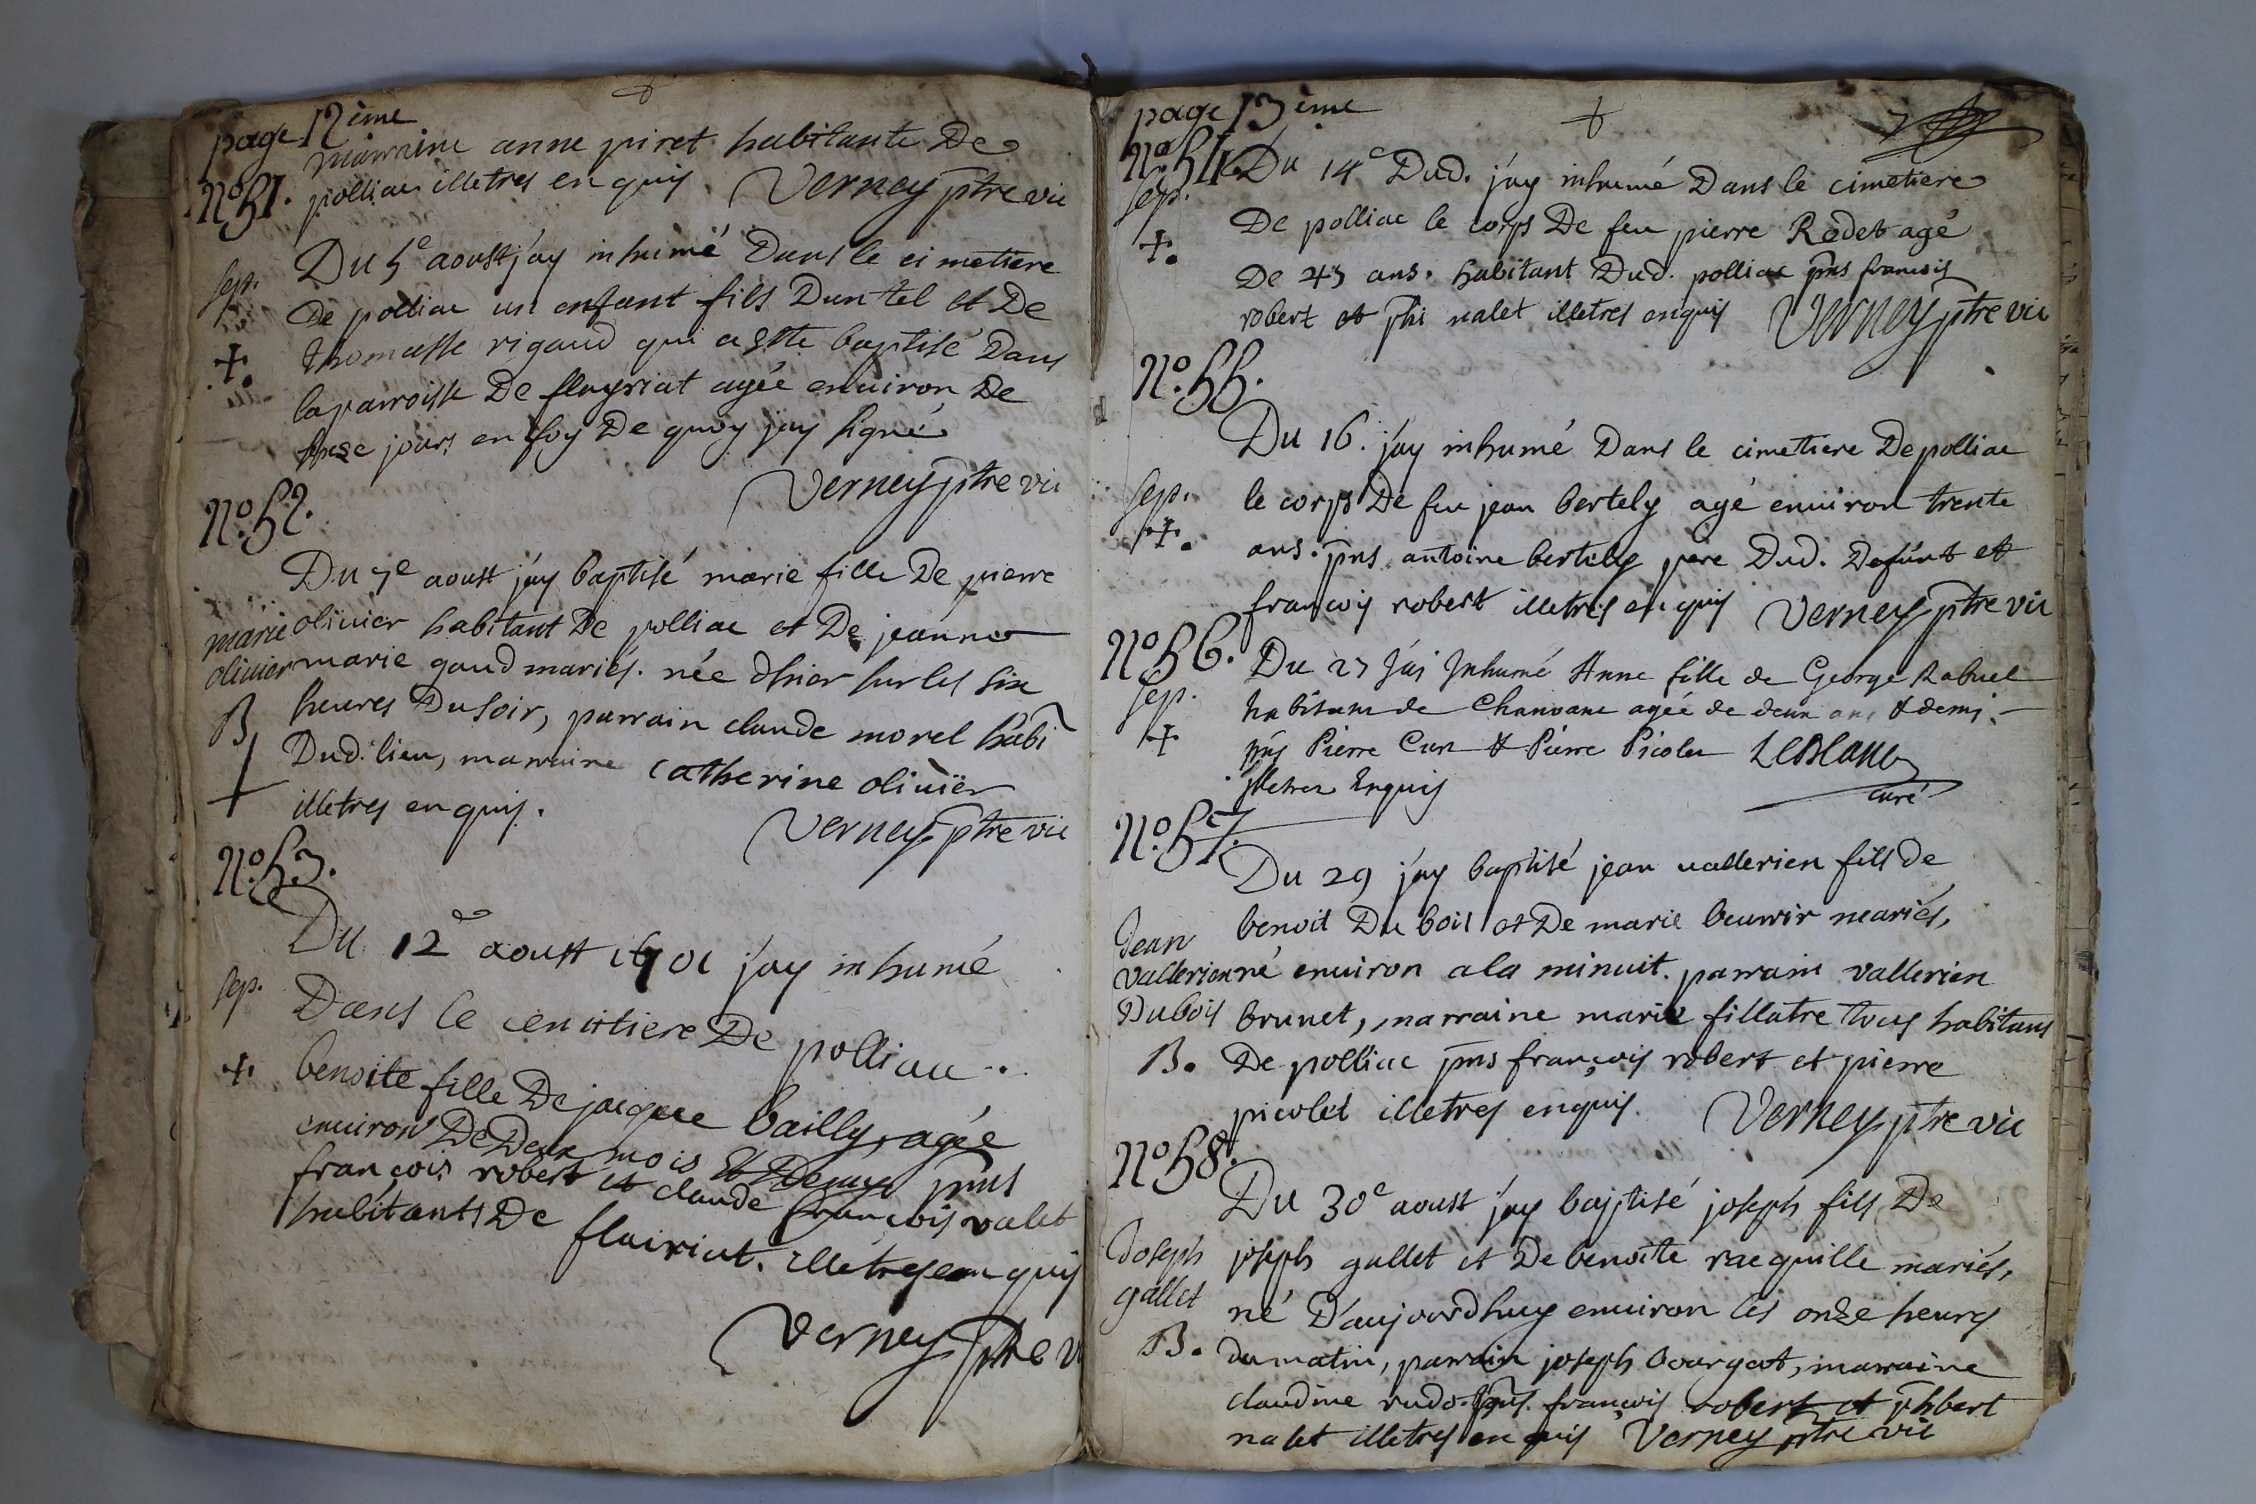 page 12ème
marraine anne piret habitante De
polliac illetres enquis. Verney ptre vic
N.º 51.
Sep.
Du 5e aoust j'ay inhumé Dans le cimetiere
De polliac un enfant fils Dun tel et De
thomasse rigaud qui a esté baptisé Dans
la parroisse De fleyriat agée environ De
jours en foy De quoy jay signé
Verney ptre vic
N.º 52.
Du 7e aoust j'ay baptisé marie fille De pierre
marie
olivier habitant De polliac et De jeanne
olivier
marie gaud mariés. née d'hier sur les six
B
heures Du soir, parrain claude morel habi
Dud. lieu, marraine catherine olivier
illetres enquis.
Verney ptre vic
N.º 53.
Du 12e aoust 1701 j'ay inhumé
Sep.
Dans le cemitiere De polliac.
benoite fille De jacque bailly, agée
environ De Deux mois Et Demy pns
françois robert et claude françois valet
habitants De flairiat. illetres enquis
Verney ptre v
page 13ème
N.º 54.
Du 14e Dud. j'ay inhumé Dans le cimetiere
Sep.
De polliac le corps De feu pierre Redet agé
De 45 ans. habitant Dud. polliac pns francois
robert et phi nalet illetres enquis Verney ptre vic
N.º 55.
Du 16. j'ay inhumé Dans le cimetiere De polliac
Sep.
le corps De feu jean bertely agé environ trente
ans. pns antoine bertely pere Dud. Defunt et
françois robert illetres enquis Verney ptre vic
N.º 56.
Du 27 J'ai Inhumé Anne fille de George Rabuel
Sep.
habitant de Chanvane agée de deux ans & demi.
pns Pierre Curt & Pierre Picolet LeBlanc
Illetrez Enquis
curé
N.º 57.
Du 29 j'ay baptisé jean vallerien fils de
benoit Du bois et De marie beurrir mariés,
Jean
vallerien
né environ a la minuit. parrain vallerien
Dubois
brunet, marraine marie fillatre tous habitans
B.
De polliac pns françois robert et pierre
picolet illetres enquis. Verney ptre vic
N.º 58.
Du 30e aoust j'ay baptisé joseph fils De
Joseph
joseph gallet et De benoite racquille mariés,
gallet
né D'aujourdhuy environ les onze heures
B.
du matin, parrain joseph bourgat, marraine
claudine rudo. pns. françois robert et phbert
nalet illetres enquis Verney ptre vic